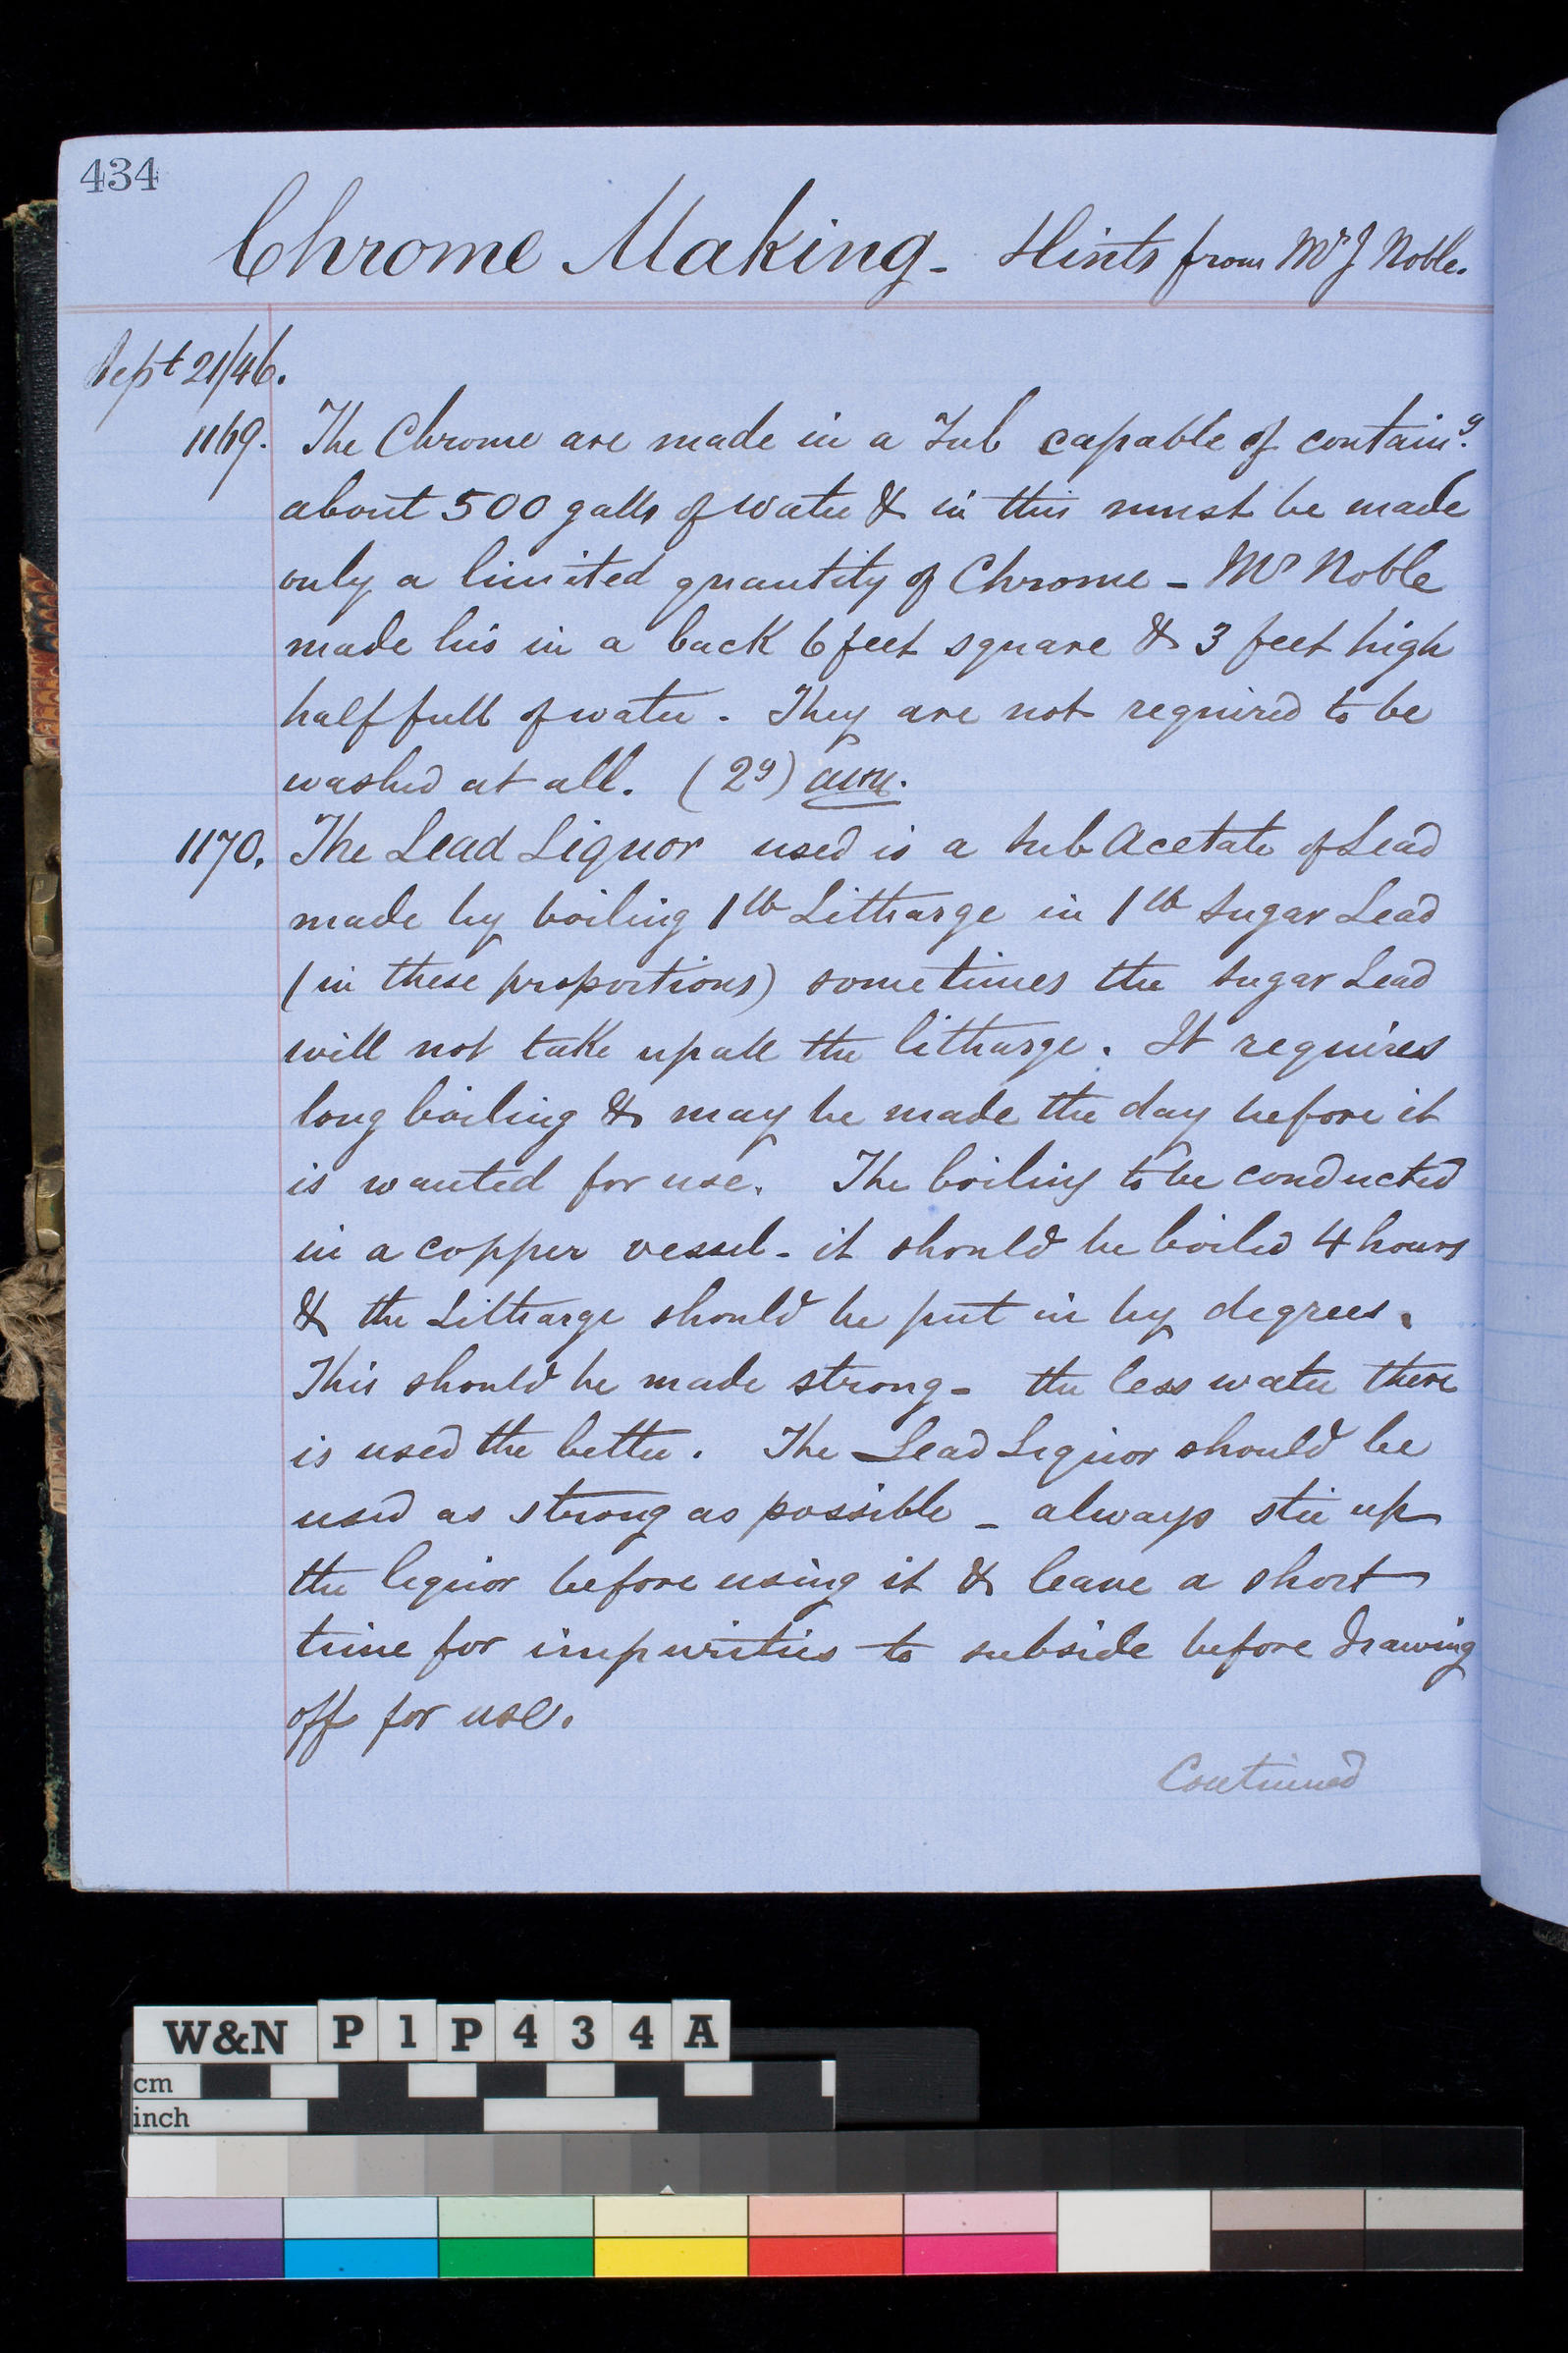 434
Chrome Making - Hints from Mr J Noble.
Sept 21/46.
1169. The Chrome are made in a Tub capable of containg.
about 500 galls of water & in this must be made
only a limited quantity of Chrome - Mr Noble
made his in a back 6 feet square & 3 feet high
half full of water. They are not required to be
washed at all. (29)
1170. The Lead Liquor used is a Sub Acetate of Lead
made by boiling 1 lb Litharge in 1 lb Sugar Lead
(in these proportions) sometimes the Sugar Lead
will not take up all the litharge. It requires
long boiling & may be made the day before it
is wanted for use. The boiling to be conducted
in a copper vessel - it should be boiled 4 hours
& the Litharge should be put in by degrees.
This should be made strong - the less water there
is used the better. The Lead Liquor should be
used as strong as possible - always stir up
the liquor before using it & leave a short
time for impurities to subside before drawing
off for use.
Continued
W&N P1P434A
cm
inch